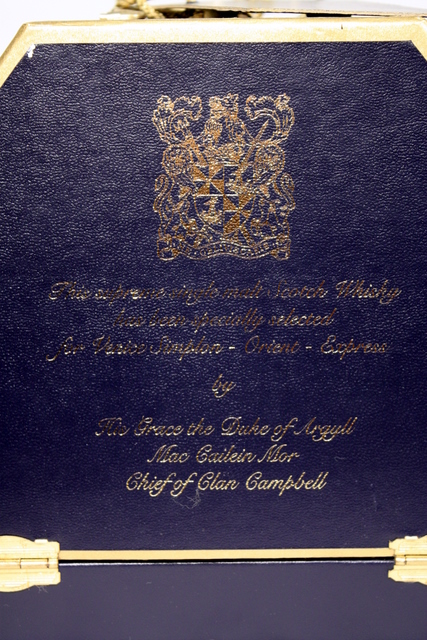 This supreme single malt Scotch Whisky
has been specially selected
for Venice Simplon - Orient - Express
by
His Grace the Duke of Argyll
Mac Cailein Mor
Chief of Clan Campbell